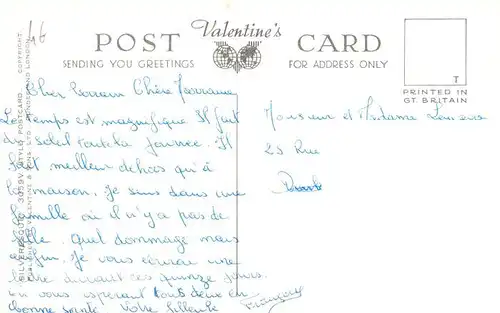 46
Valentine's
POST CARD
SENDING YOU GREETINGS
FOR ADDRESS ONLY
T
PRINTED IN
GT. BRITAIN
"SILVERESQUE" POSTCARD COPYRIGHT
VALENTINE & SONS LTD DUNDEE AND LONDON
Cher Chère
Le temps est magnifique Il fait
du soleil toute la journée. Il
fait meilleur dehors qu'à
la maison. Je suis dans une
famille où il n'y a pas de
fille. Quel dommage mais
enfin. Je vous écrirai une
lettre durant ces quinze jours.
En vous espérant tous deux en
bonne santé Votre filleule
Monsieur et Madame
25 Rue